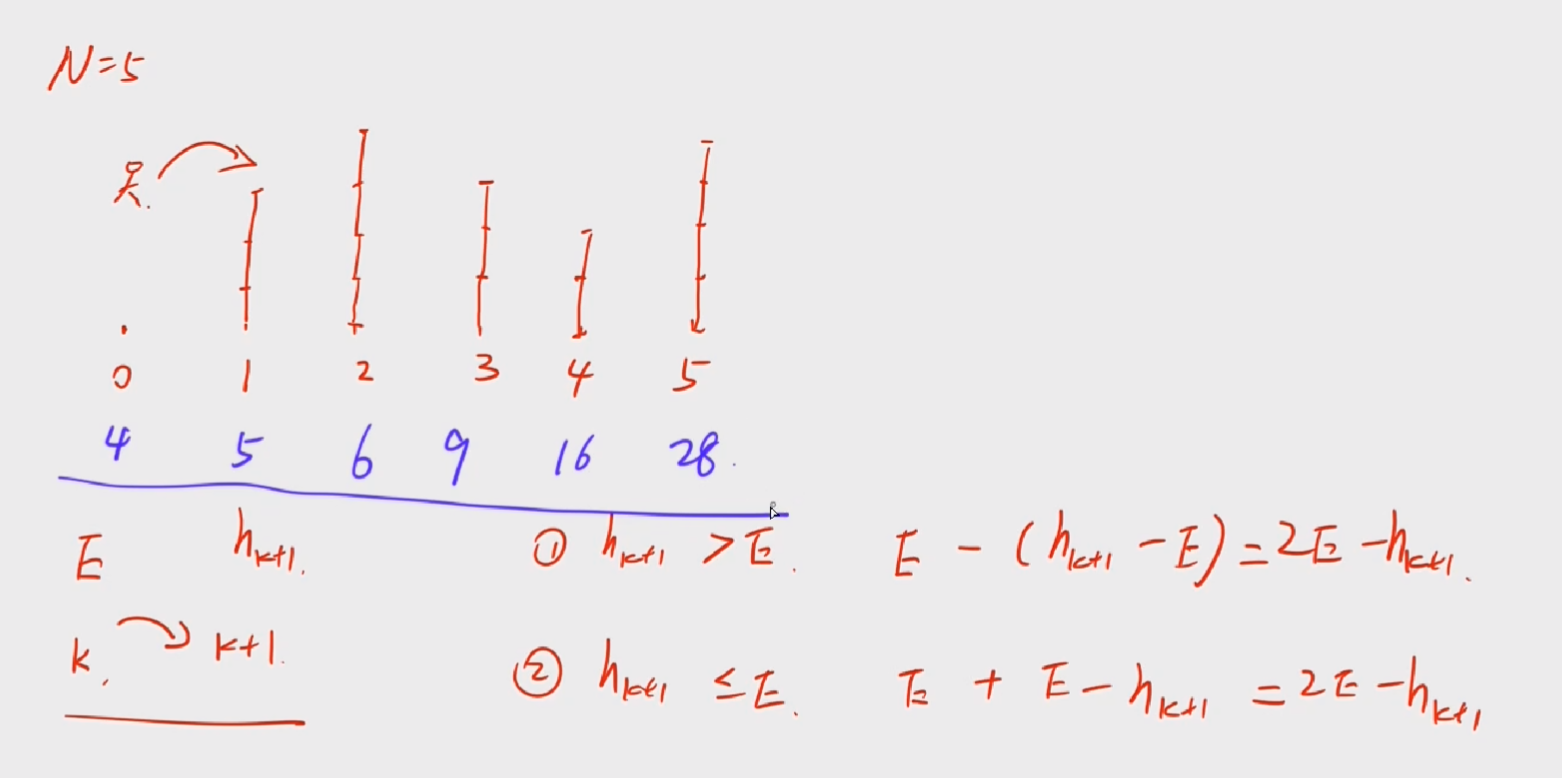 N=5
0 1 2 3 4 5
4 5 6 9 16 28.
E h_{k+1}. ① h_{k+1} > E. E - (h_{k+1} - E) = 2E - h_{k+1}.
k. k+1. ② h_{k+1} ≤ E. E + E - h_{k+1} = 2E - h_{k+1}